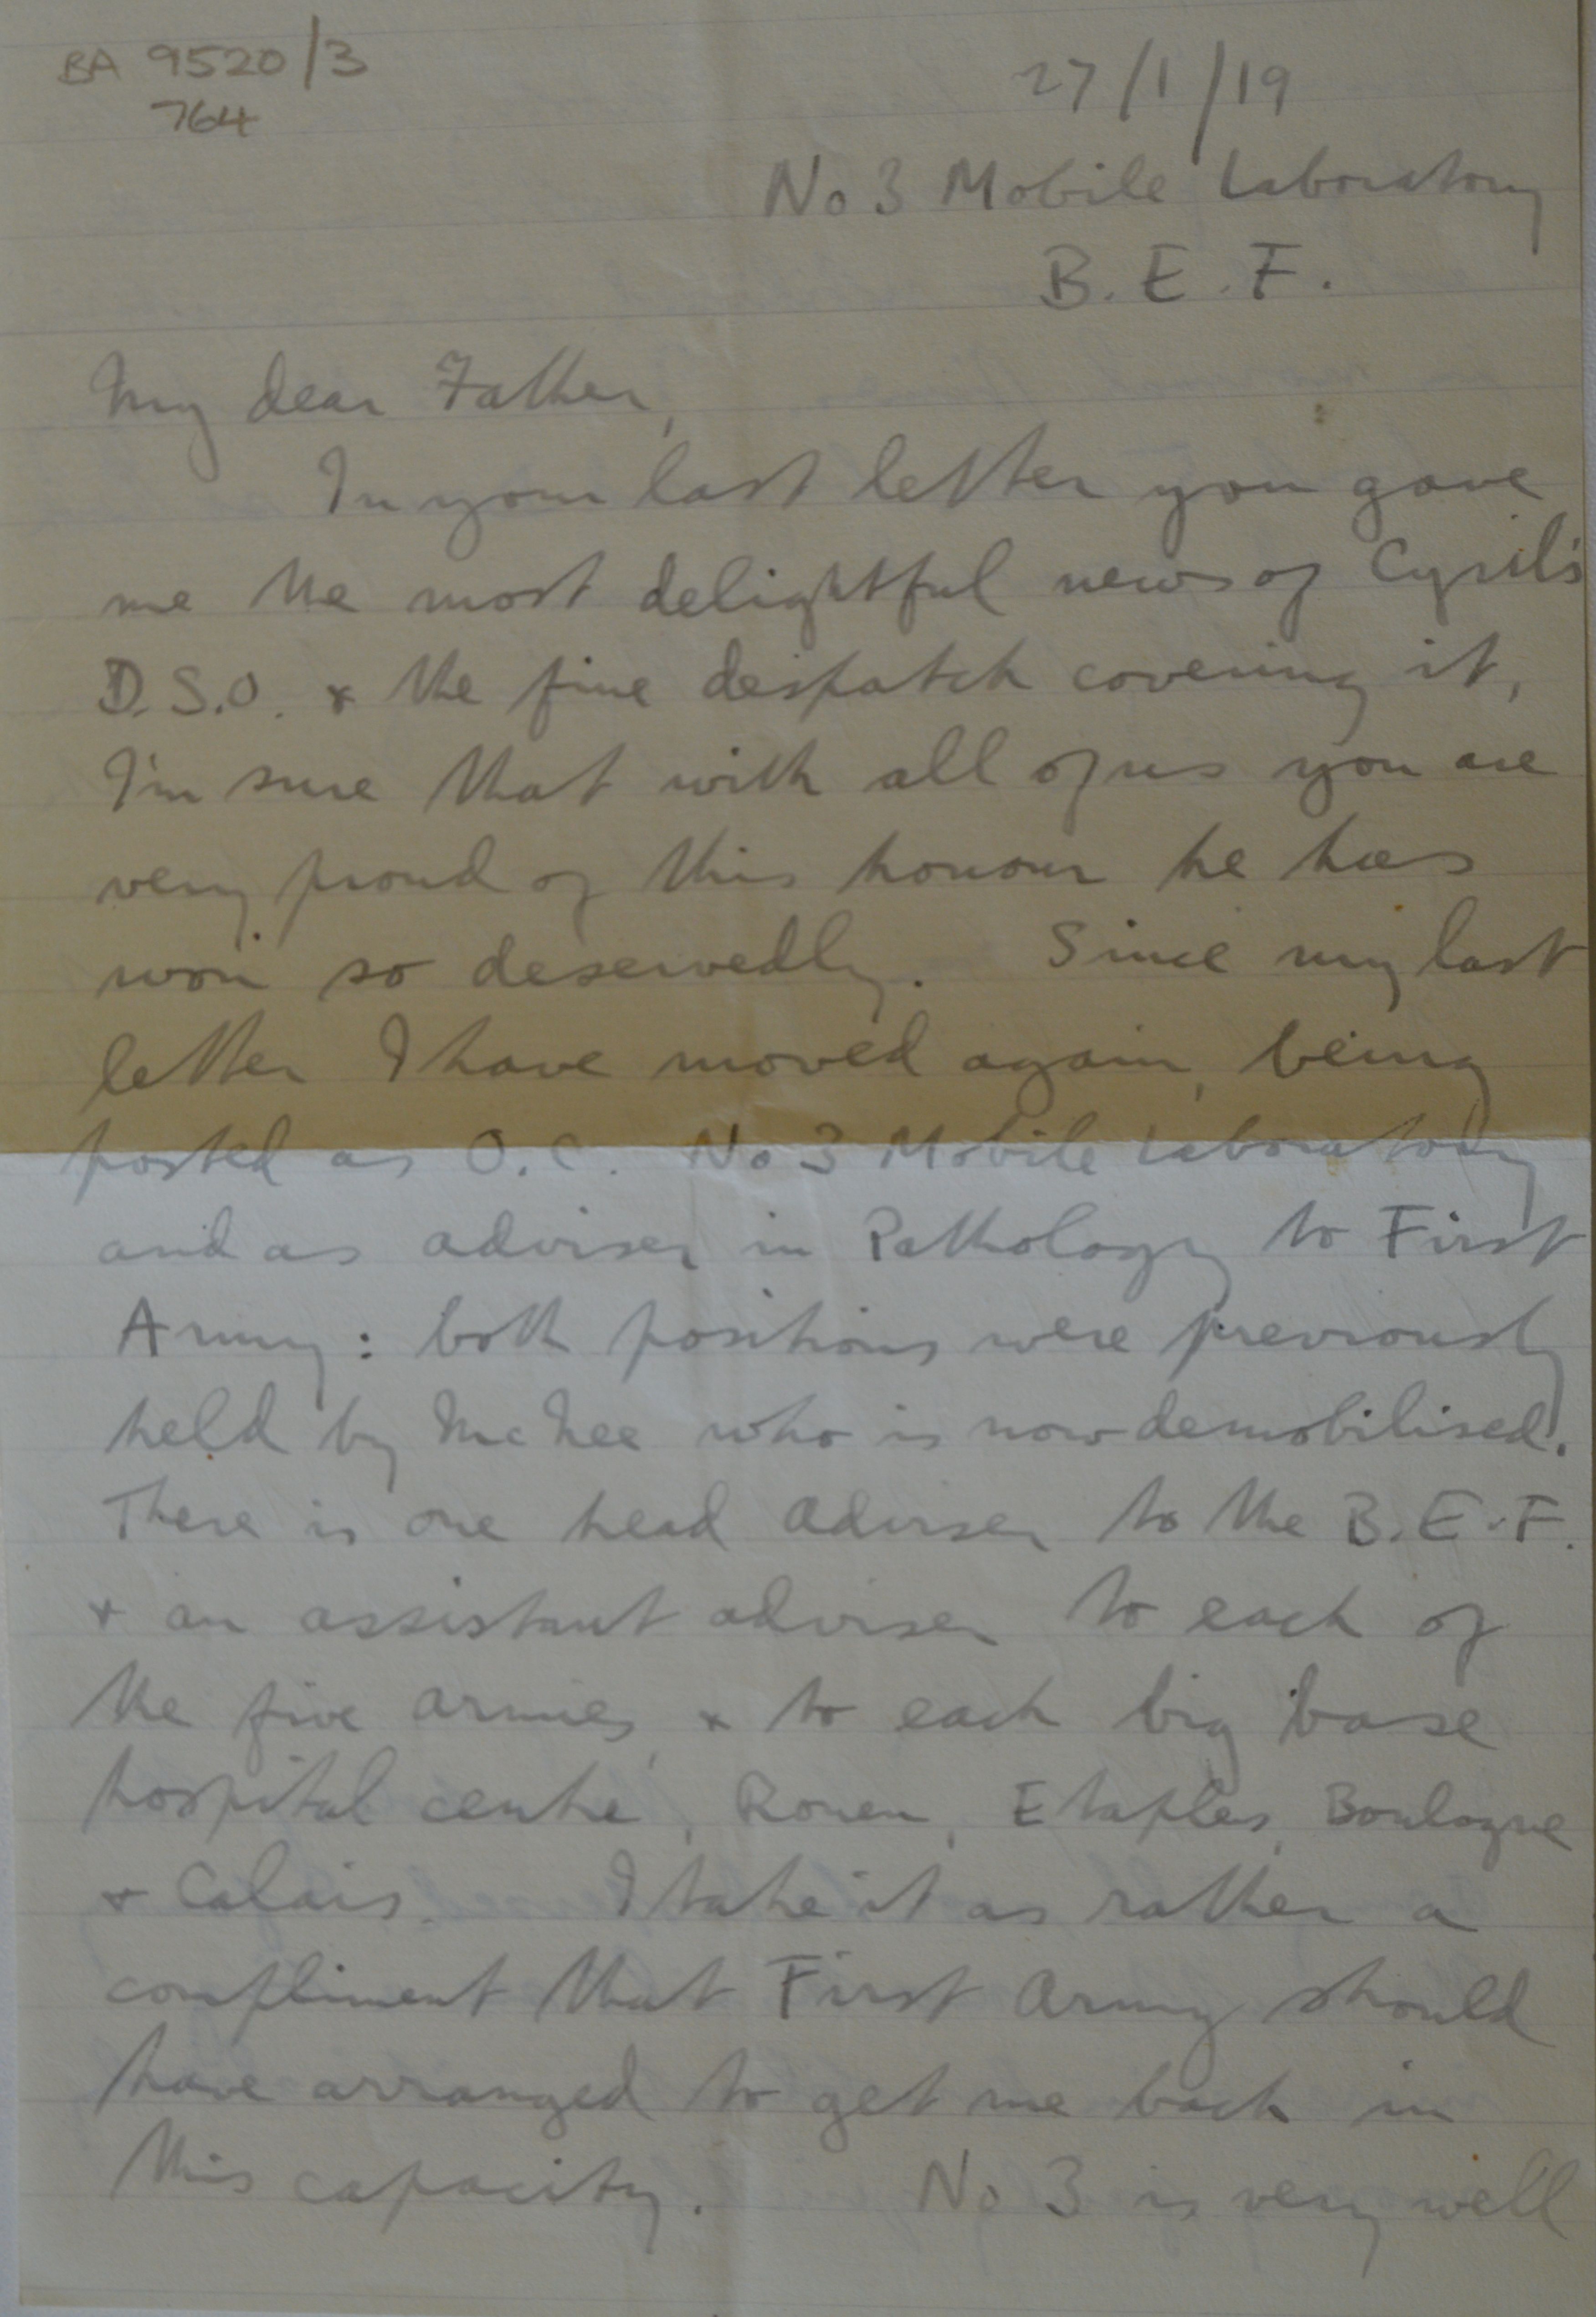 BA 9520/3
764
27/1/19
No 3 Mobile Laboratory
B.E.F.
My dear Father,
In your last letter you gave
me the most delightful news of Cyril's
D.S.O. & the fine despatch covering it,
I'm sure that with all of us you are
very proud of this honour he has
won so deservedly. Since my last
letter I have moved again, being
posted as O.C. No 3 Mobile Laboratory
and as adviser in Pathology to First
Army: both positions were previously
held by McNee who is now demobilised.
There is one head adviser to the B.E.F.
& an assistant adviser to each of
the five armies, & to each big base
hospital centre, Rouen, Etaples, Boulogne
& Calais. I take it as rather a
compliment that First Army should
have arranged to get me back in
this capacity. No 3 is very well